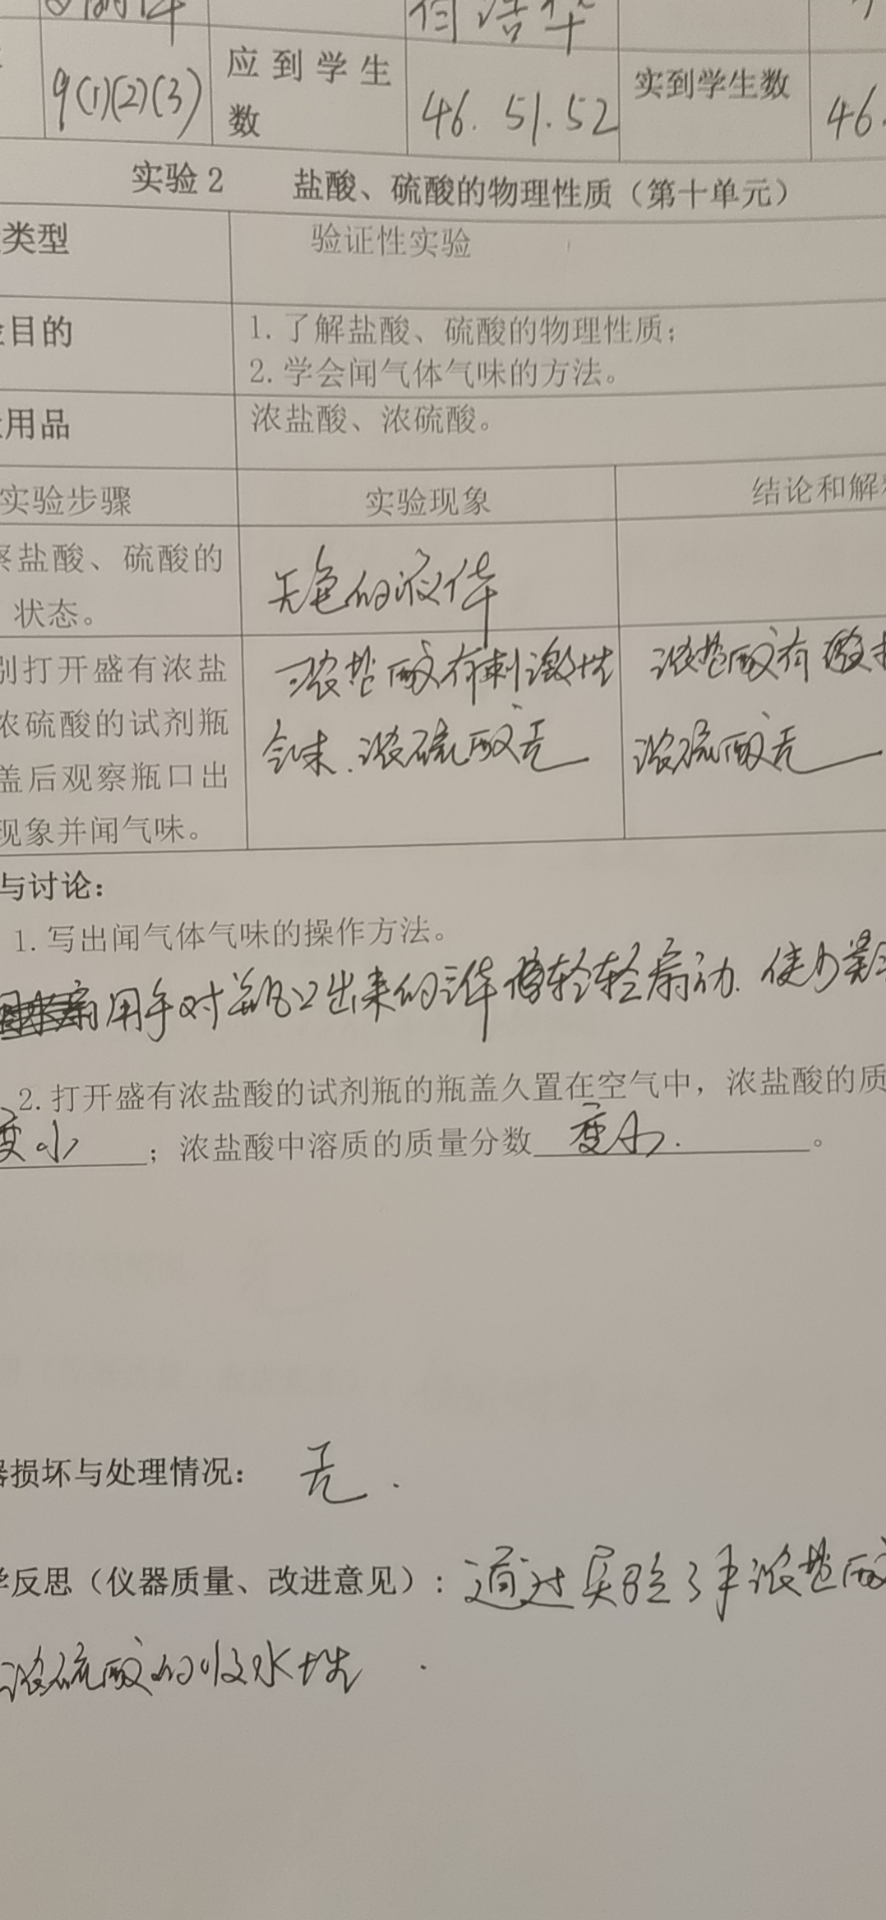 9(1)(2)(3) 应到学生数 46. 51. 52 实到学生数 46.
实验2 盐酸、硫酸的物理性质（第十单元）
类型 验证性实验
目的 1.了解盐酸、硫酸的物理性质；
2.学会闻气体气味的方法。
用品 浓盐酸、浓硫酸。
实验步骤 实验现象 结论和解
察盐酸、硫酸的
状态。
无色的液体
别打开盛有浓盐
浓硫酸的试剂瓶
盖后观察瓶口出
现象并闻气味。
浓盐酸有刺激性
气味.浓硫酸无
浓盐酸有
浓硫酸无
与讨论：
1.写出闻气体气味的操作方法。
用手对着瓶口出来的气体轻轻扇动.使少量
2.打开盛有浓盐酸的试剂瓶的瓶盖久置在空气中，浓盐酸的质
变小；浓盐酸中溶质的质量分数变小.。
器损坏与处理情况： 无.
学反思（仪器质量、改进意见）：通过实验了解浓盐酸
浓硫酸的吸水性.